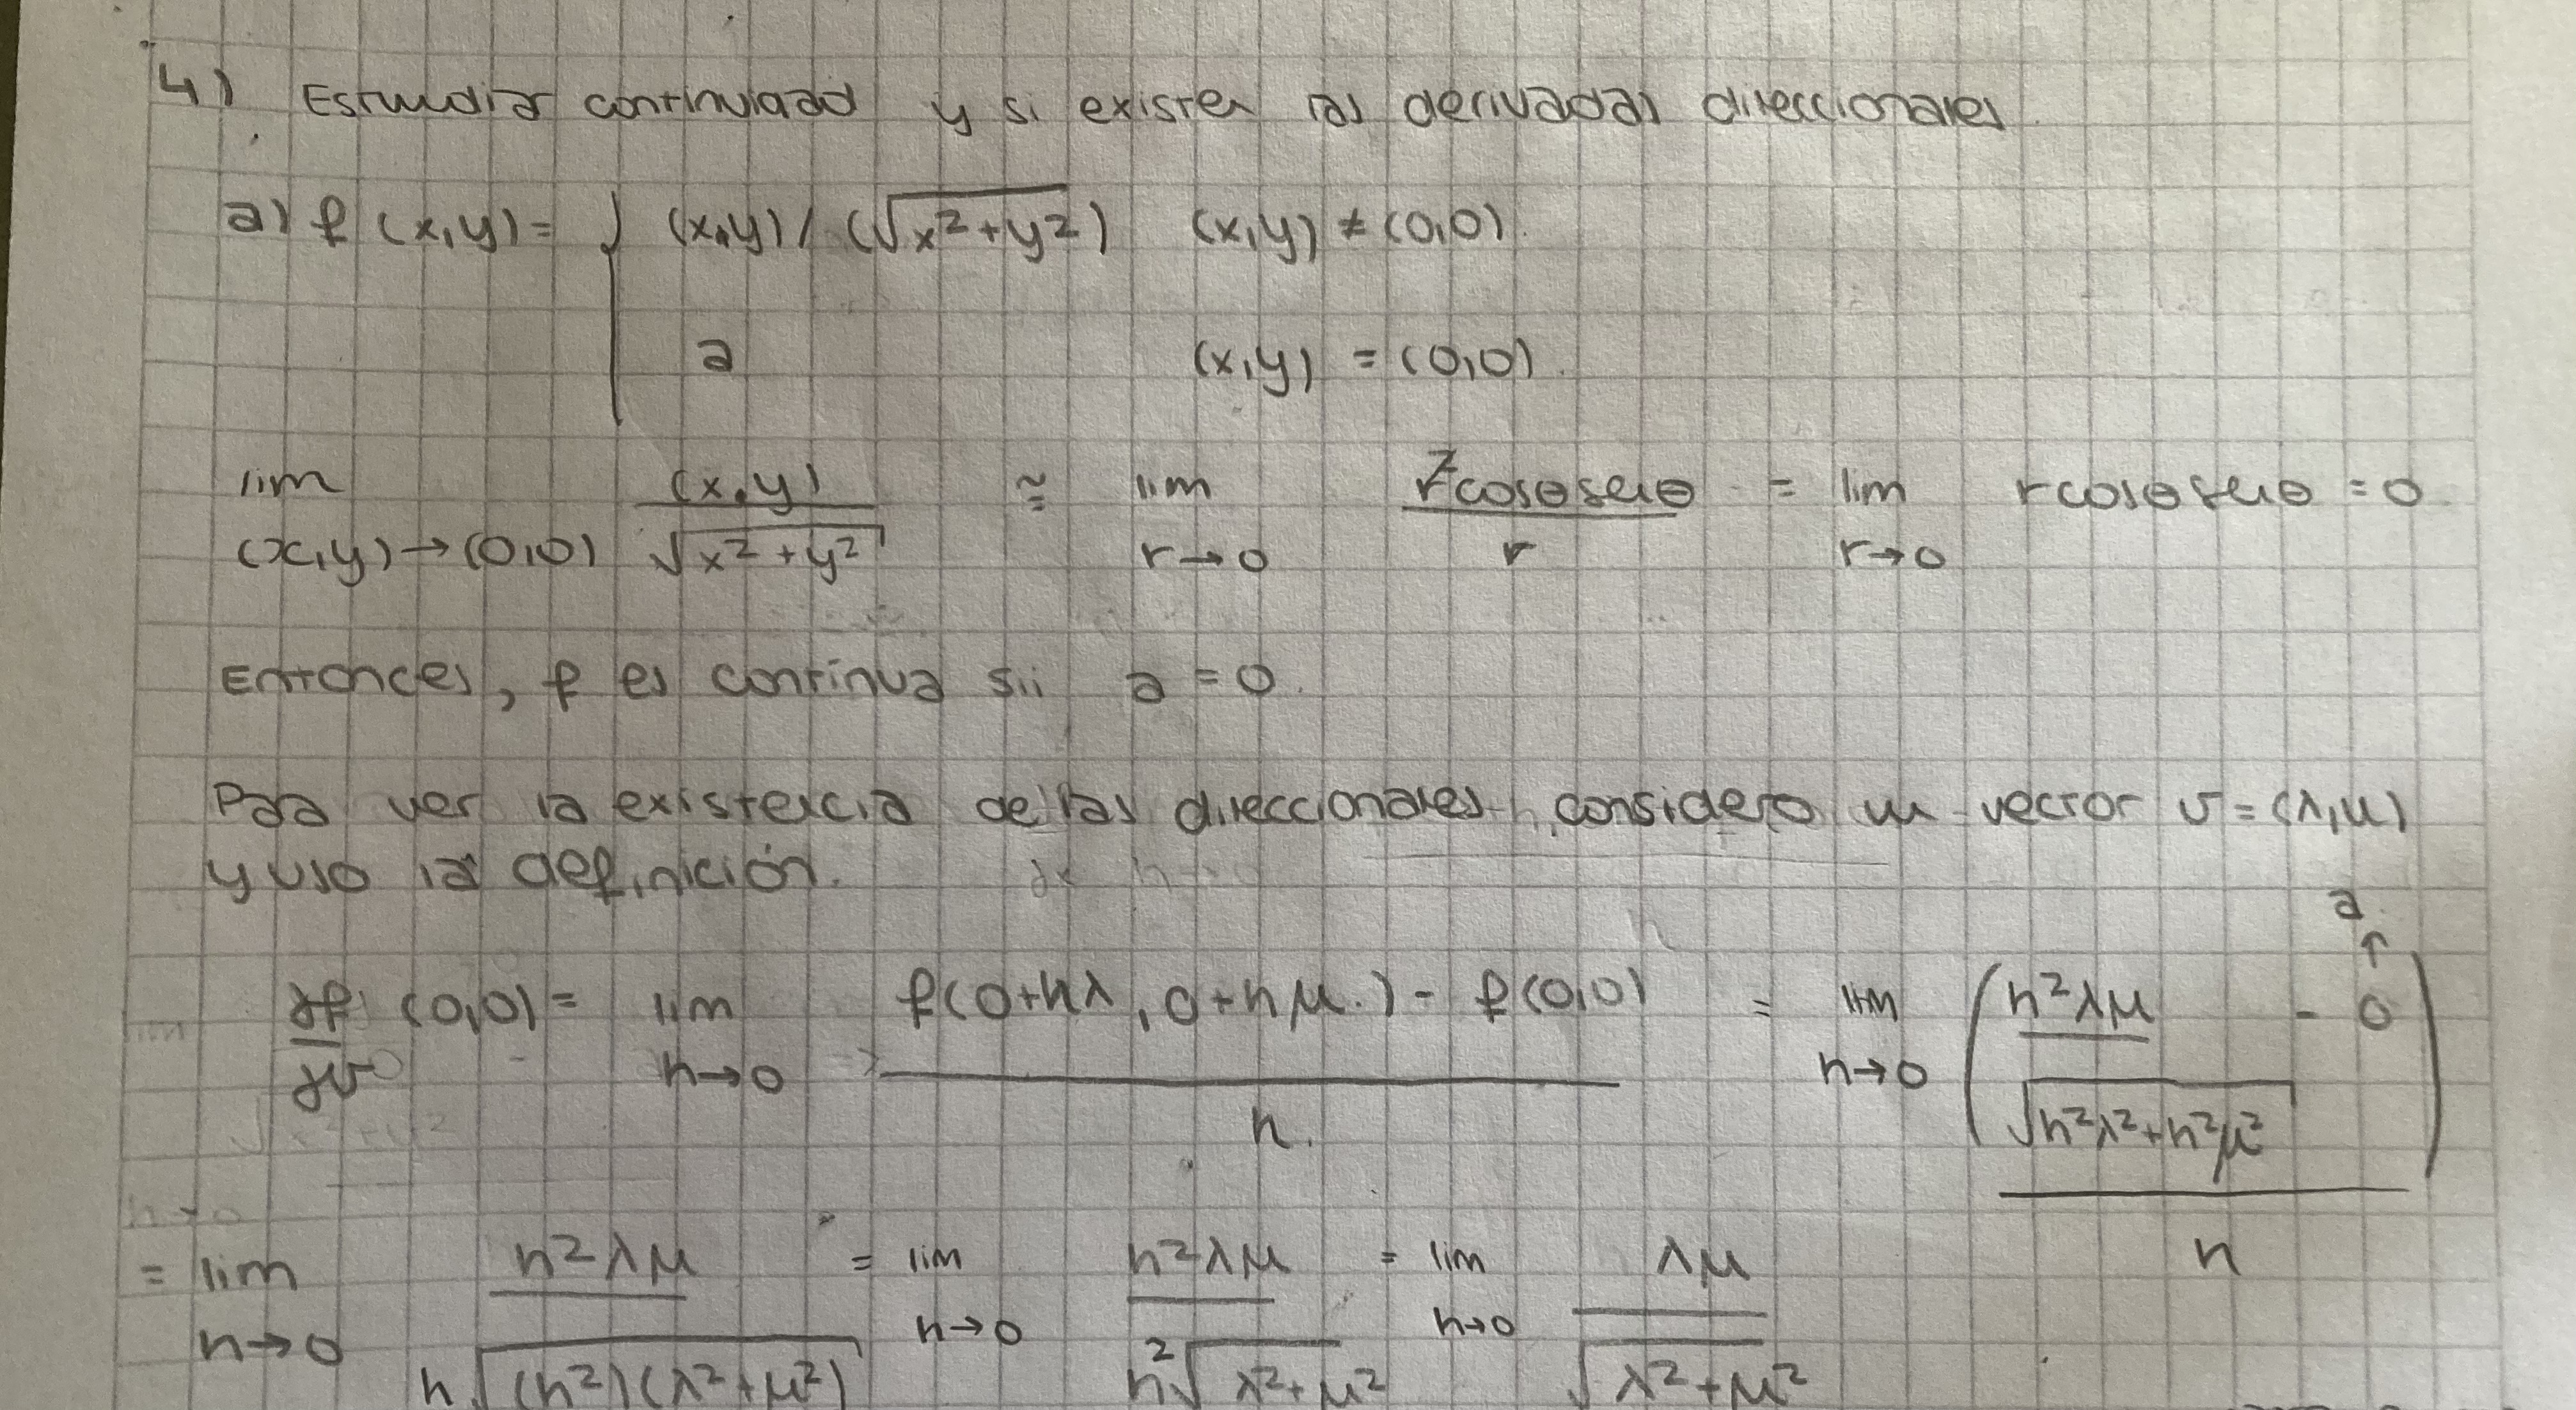 4) Estudiar continuidad y si existen las derivadas direccionales.
a) f(x,y) = { (x.y) / (√x²+y²) (x,y) ≠ (0,0).
a (x,y) = (0,0).
lim (x,y)→(0,0) (x.y) / √x²+y² ≅ lim r→0 r² cosθ senθ / r = lim r→0 r cosθ senθ = 0
Entonces, f es continua sii a = 0.
Para ver la existencia de las direccionales, considero un vector v = (λ,μ)
y uso la definición.
∂f/∂v (0,0) = lim h→0 f(0+hλ, 0+hμ) - f(0,0) / h = lim h→0 (h²λμ / √h²λ²+h²μ² - 0 ↑ a) / h
= lim h→0 h²λμ / h√(h²)(λ²+μ²) = lim h→0 h²λμ / h²√λ²+μ² = lim h→0 λμ / √λ²+μ²